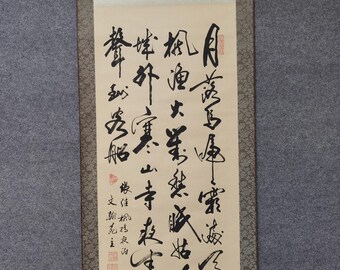 月落烏啼霜滿天
楓漁火對愁眠姑
城外寒山寺夜半
聲到客船
楓橋夜泊